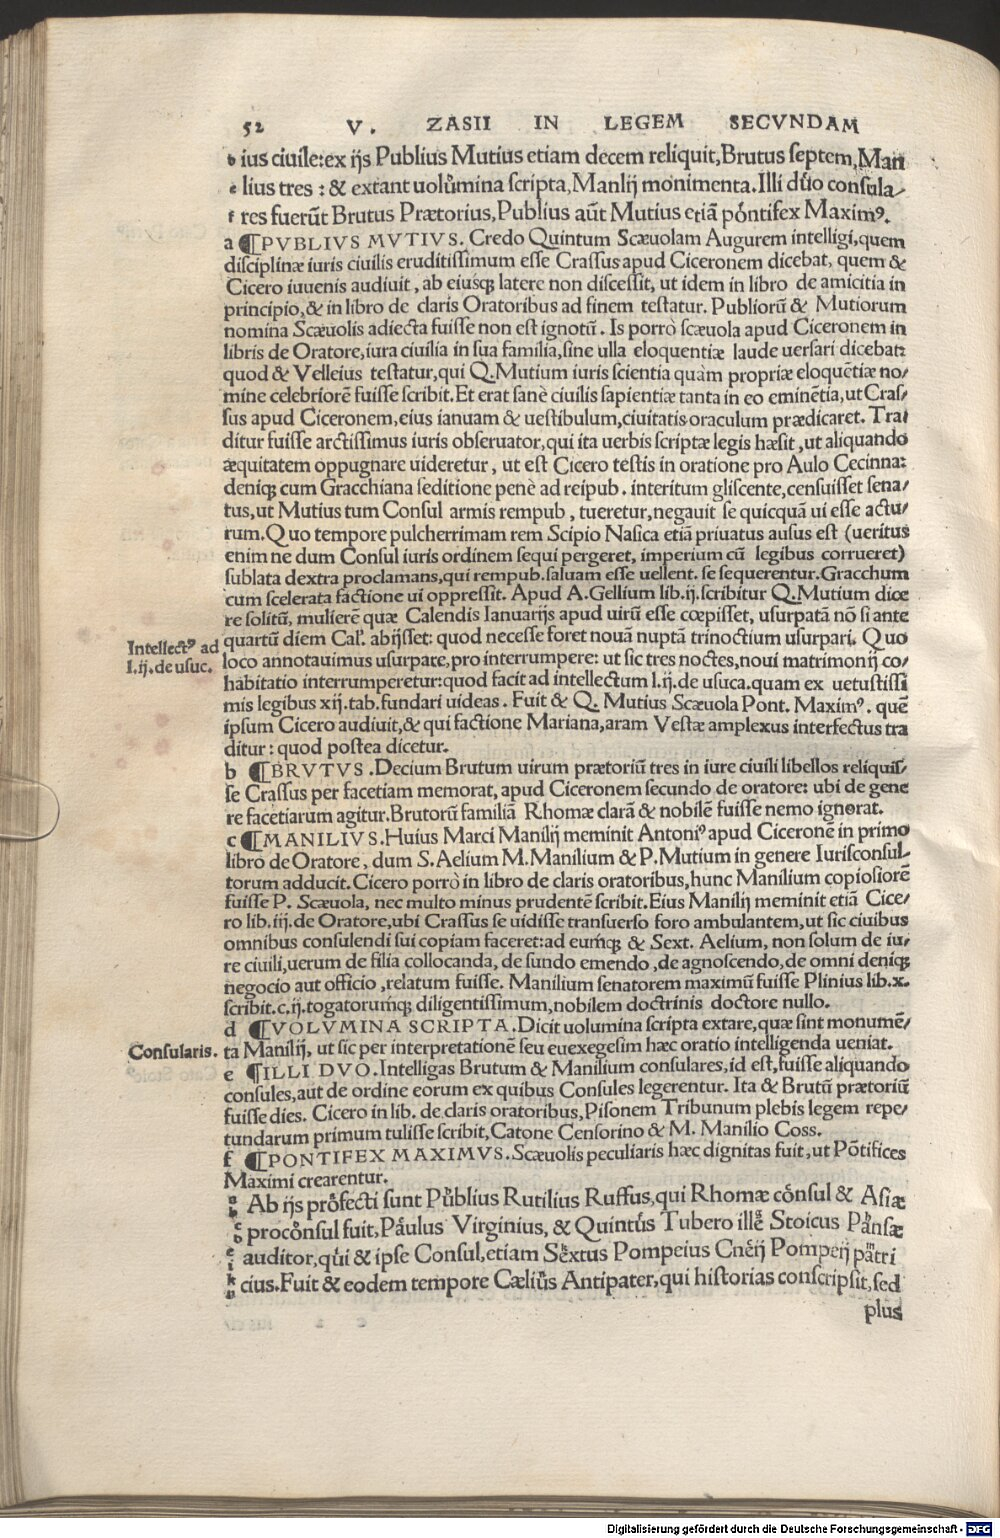 52 V. ZASII IN LEGEM SECVNDAM
b ius ciuile: ex ijs Publius Mutius etiam decem reliquit, Brutus septem, Man
e lius tres : & extant uolumina scripta, Manlij monimenta. Illi duo consula/
f res fuerūt Brutus Prætorius, Publius aūt Mutius etiā pontifex Maximꝰ.
a ¶PVBLIVS MVTIVS. Credo Quintum Scæuolam Augurem intelligi, quem
disciplinæ iuris ciuilis eruditissimum esse Crassus apud Ciceronem dicebat, quem &
Cicero iuuenis audiuit, ab eiusqꝫ latere non discessit, ut idem in libro de amicitia in
principio, & in libro de claris Oratoribus ad finem testatur. Publiorū & Mutiorum
nomina Scæuolis adiecta fuisse non est ignotū. Is porrò scæuola apud Ciceronem in
libris de Oratore, iura ciuilia in sua familia, sine ulla eloquentiæ laude uersari dicebat:
quod & Velleius testatur, qui Q. Mutium iuris scientia quàm propriæ eloquētiæ no/
mine celebriorē fuisse scribit. Et erat sanè ciuilis sapientiæ tanta in eo eminētia, ut Cras/
sus apud Ciceronem, eius ianuam & uestibulum, ciuitatis oraculum prædicaret. Tra/
ditur fuisse arctissimus iuris obseruator, qui ita uerbis scriptæ legis hæsit, ut aliquando
æquitatem oppugnare uideretur, ut est Cicero testis in oratione pro Aulo Cecinna:
deniqꝫ cum Gracchiana seditione penè ad reipub. interitum gliscente, censuisset sena/
tus, ut Mutius tum Consul armis rempub, tueretur, negauit se quicquā ui esse actu/
rum. Quo tempore pulcherrimam rem Scipio Nasica etiā priuatus ausus est (ueritus
enim ne dum Consul iuris ordinem sequi pergeret, imperium cū legibus corrueret)
sublata dextra proclamans, qui rempub. saluam esse uellent. se sequerentur. Gracchum
cum scelerata factione ui oppressit. Apud A. Gellium lib. ij. scribitur Q. Mutium dice
re solitū, mulierē quæ Calendis Ianuarijs apud uirū esse cœpisset, usurpatā nō si ante
Intellectꝰ ad
l. ij. de usuc.
quartū diem Cal. abijsset: quod necesse foret nouā nuptā trinoctium usurpari. Quo
loco annotauimus usurpare, pro interrumpere: ut sic tres noctes, noui matrimonij co/
habitatio interrumperetur: quod facit ad intellectum l. ij. de usuca. quam ex uetustissi
mis legibus xij. tab. fundari uideas. Fuit & Q. Mutius Scæuola Pont. Maximꝰ. quē
ipsum Cicero audiuit, & qui factione Mariana, aram Vestæ amplexus interfectus tra
ditur: quod postea dicetur.
b ¶BRVTVS. Decium Brutum uirum prætoriū tres in iure ciuili libellos reliquis/
se Crassus per facetiam memorat, apud Ciceronem secundo de oratore: ubi de gene
re facetiarum agitur. Brutorū familiā Rhomæ clarā & nobilē fuisse nemo ignorat.
c ¶MANILIVS. Huius Marci Manilij meminit Antoniꝰ apud Ciceronē in primo
libro de Oratore, dum S. Aelium M. Manilium & P. Mutium in genere Iurisconsul/
torum adducit. Cicero porrò in libro de claris oratoribus, hunc Manilium copiosiorē
fuisse P. Scæuola, nec multo minus prudentē scribit. Eius Manilij meminit etiā Cice/
ro lib. iij. de Oratore, ubi Crassus se uidisse transuerso foro ambulantem, ut sic ciuibus
omnibus consulendi sui copiam faceret: ad eumqꝫ & Sext. Aelium, non solum de iu/
re ciuili, uerum de filia collocanda, de fundo emendo, de agnoscendo, de omni deniqꝫ
negocio aut officio, relatum fuisse. Manilium senatorem maximū fuisse Plinius lib. x.
scribit. c. ij. togatorumqꝫ diligentissimum, nobilem doctrinis doctore nullo.
d ¶VOLVMINA SCRIPTA. Dicit uolumina scripta extare, quæ sint monumē/
Consularis.
ta Manilij, ut sic per interpretationē seu euexegesim hæc oratio intelligenda ueniat.
e ¶ILLI DVO. Intelligas Brutum & Manilium consulares, id est, fuisse aliquando
consules, aut de ordine eorum ex quibus Consules legerentur. Ita & Brutū prætoriū
fuisse dies. Cicero in lib. de claris oratoribus, Pisonem Tribunum plebis legem repe/
tundarum primum tulisse scribit, Catone Censorino & M. Manilio Coss.
f ¶PONTIFEX MAXIMVS. Scæuolis peculiaris hæc dignitas fuit, ut Pōtifices
Maximi crearentur.
Ab ijs profecti sunt Publius Rutilius Ruffus, qui Rhomæ consul & Asiæ
proconsul fuit, Paulus Virginius, & Quintus Tubero ille Stoicus Pansæ
auditor, qui & ipse Consul, etiam Sextus Pompeius Cneij Pompeij patri
cius. Fuit & eodem tempore Cælius Antipater, qui historias conscripsit, sed
plus
Digitalisierung gefördert durch die Deutsche Forschungsgemeinschaft - DFG